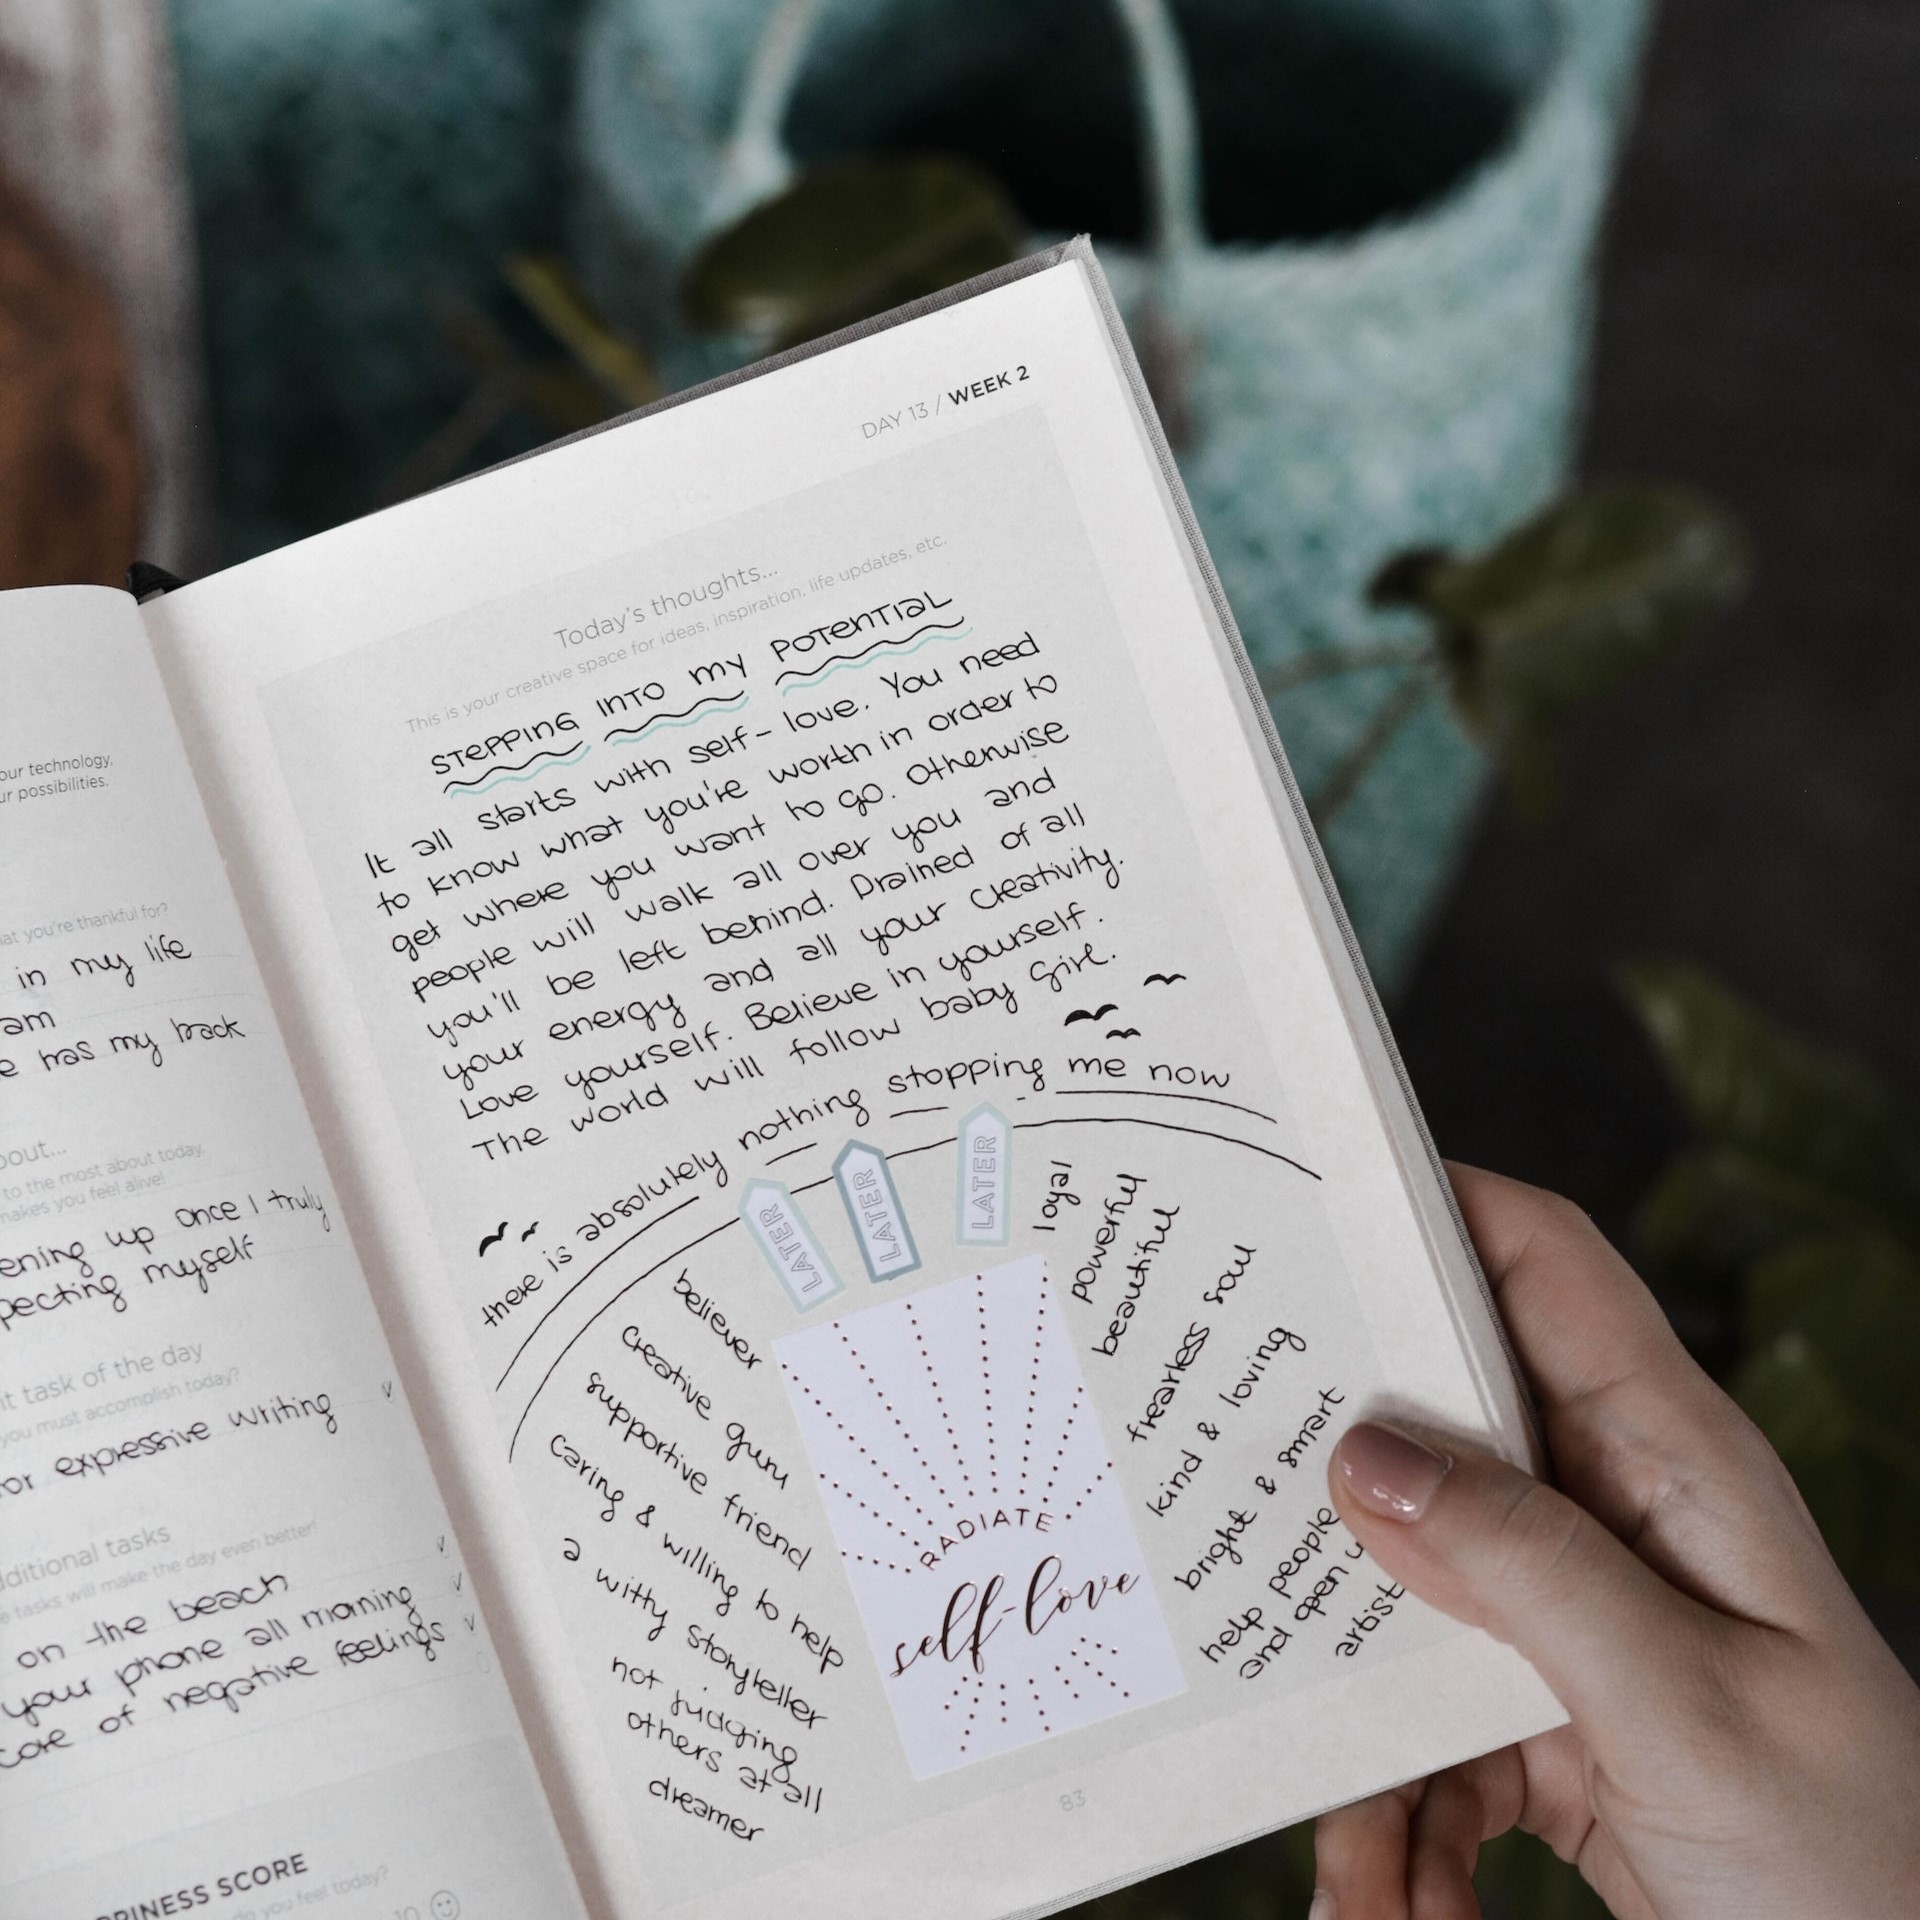 our technology,
ur possibilities.
at you're thankful for?
in my life
am
e has my back
out...
to the most about today.
makes you feel alive!
ening up once I truly
pecting myself
t task of the day
you must accomplish today?
or expressive writing
ditional tasks
e tasks will make the day even better!
on the beach
your phone all morning
core of negative feelings
PPINESS SCORE
do you feel today?
10
DAY 13 / WEEK 2
Today's thoughts...
This is your creative space for ideas, inspiration, life updates, etc.
STEPPING INTO MY POTENTIAL
It all starts with self-love. You need
to know what you're worth in order to
get where you want to go. Otherwise
people will walk all over you and
you'll be left behind. Drained of all
your energy and all your creativity.
Love yourself. Believe in yourself.
The world will follow baby girl.
there is absolutely nothing stopping me now
LATER
LATER
LATER
believer
creative guru
supportive friend
caring & willing to help
a witty storyteller
not judging
others at all
dreamer
RADIATE
self-love
loyal
powerful
beautiful
fearless soul
kind & loving
bright & smart
help people
and open u
artist
83